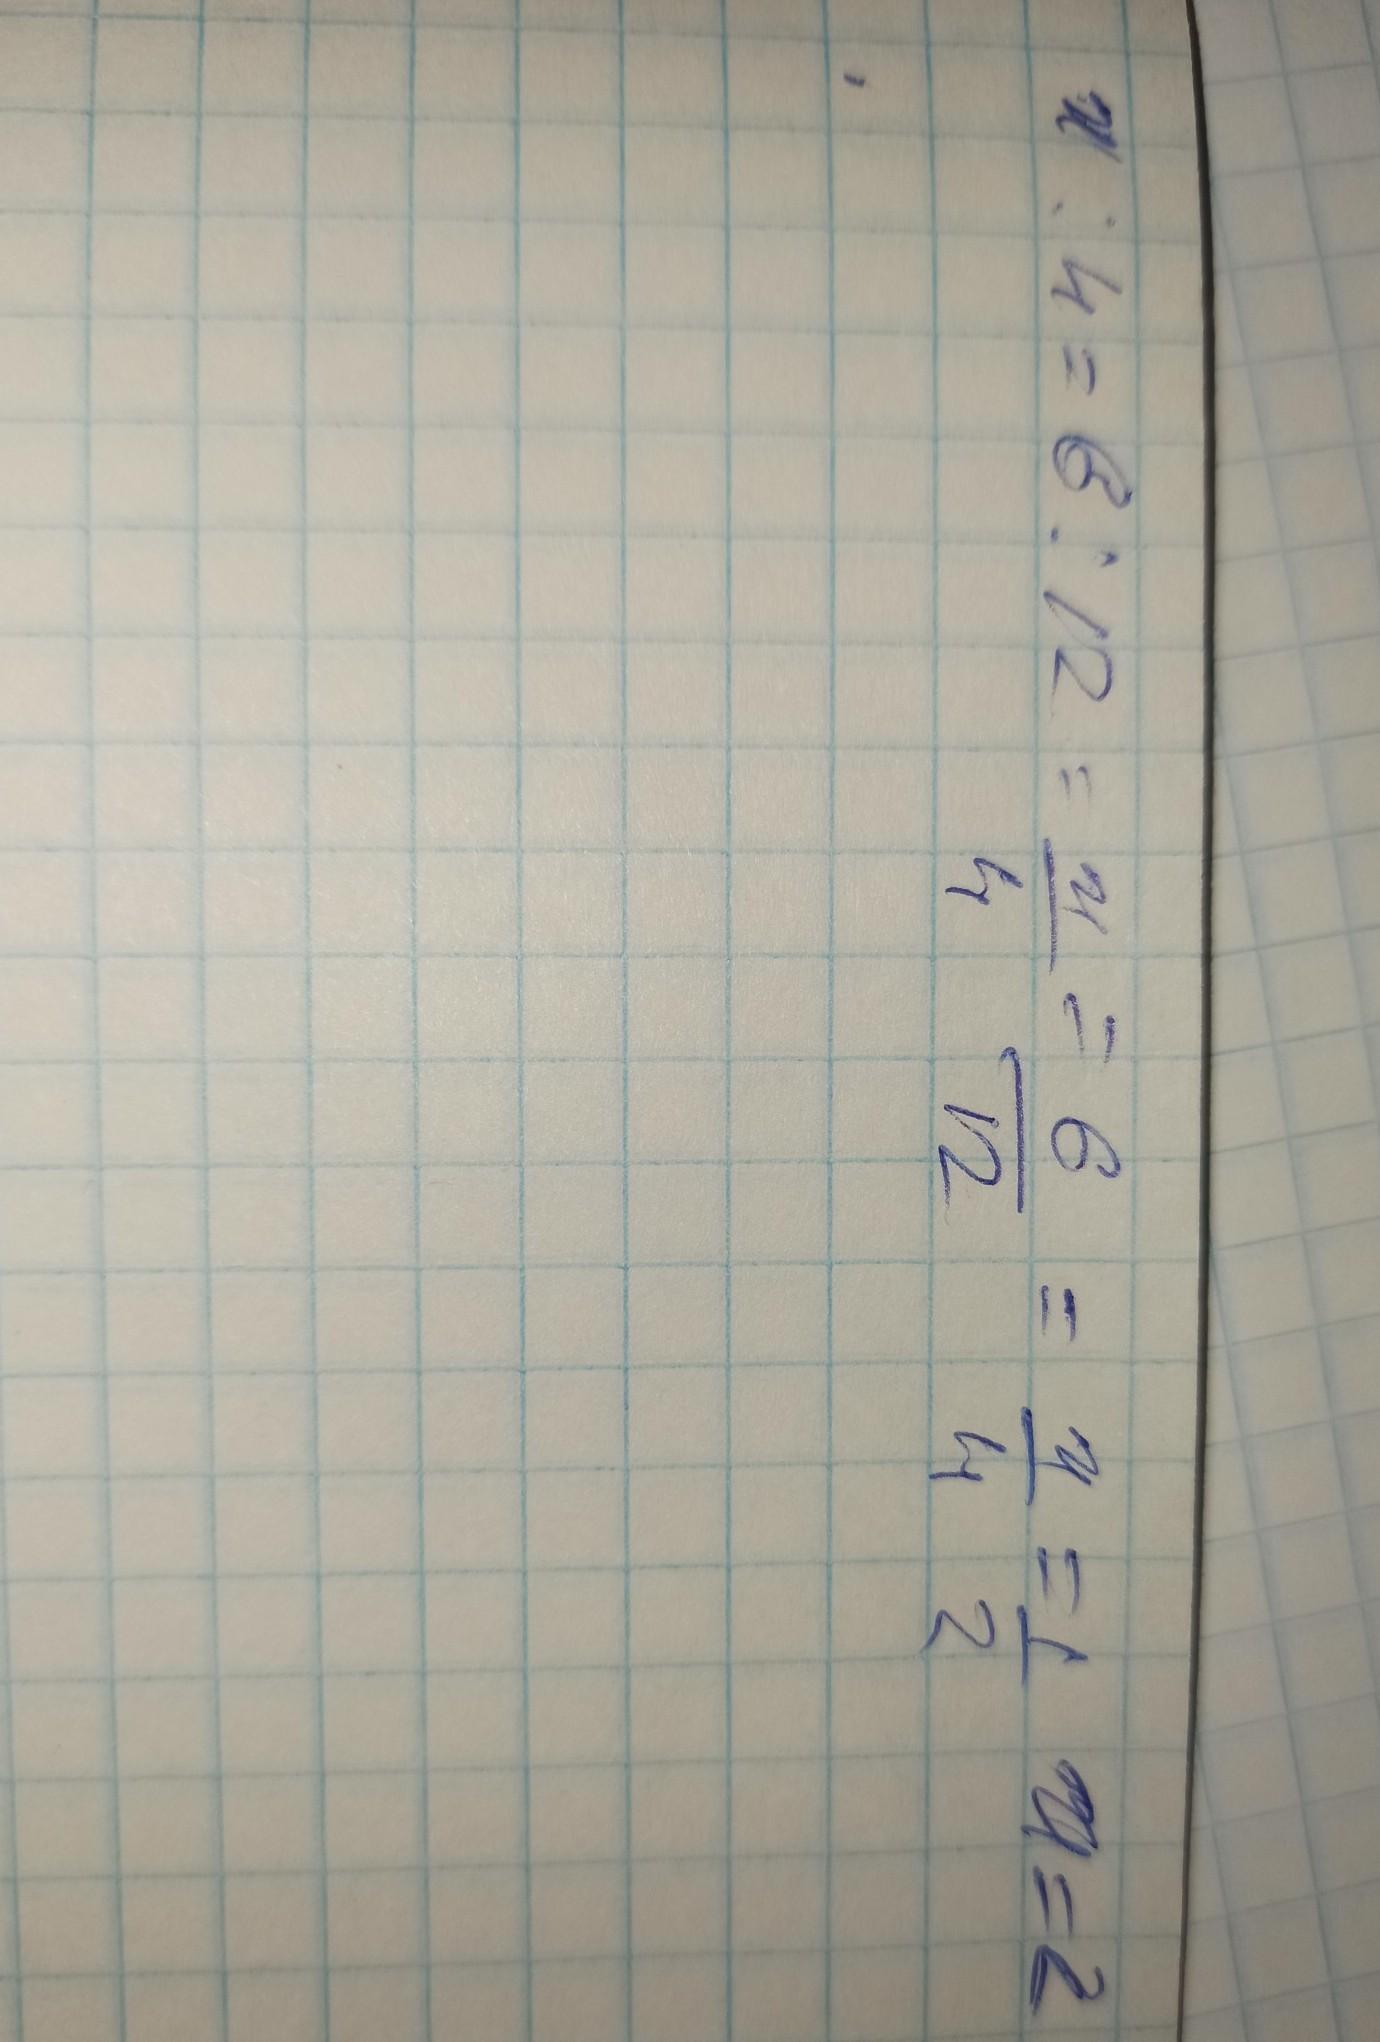 x : 4 = 6 : 12 = x/4 = 6/12 = x/4 = 1/2 x = 2